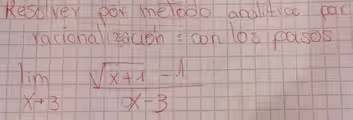 Resolver por metodo analitico por
racionalización : con los pasos
lim √x+1 - 1
x→3 x-3